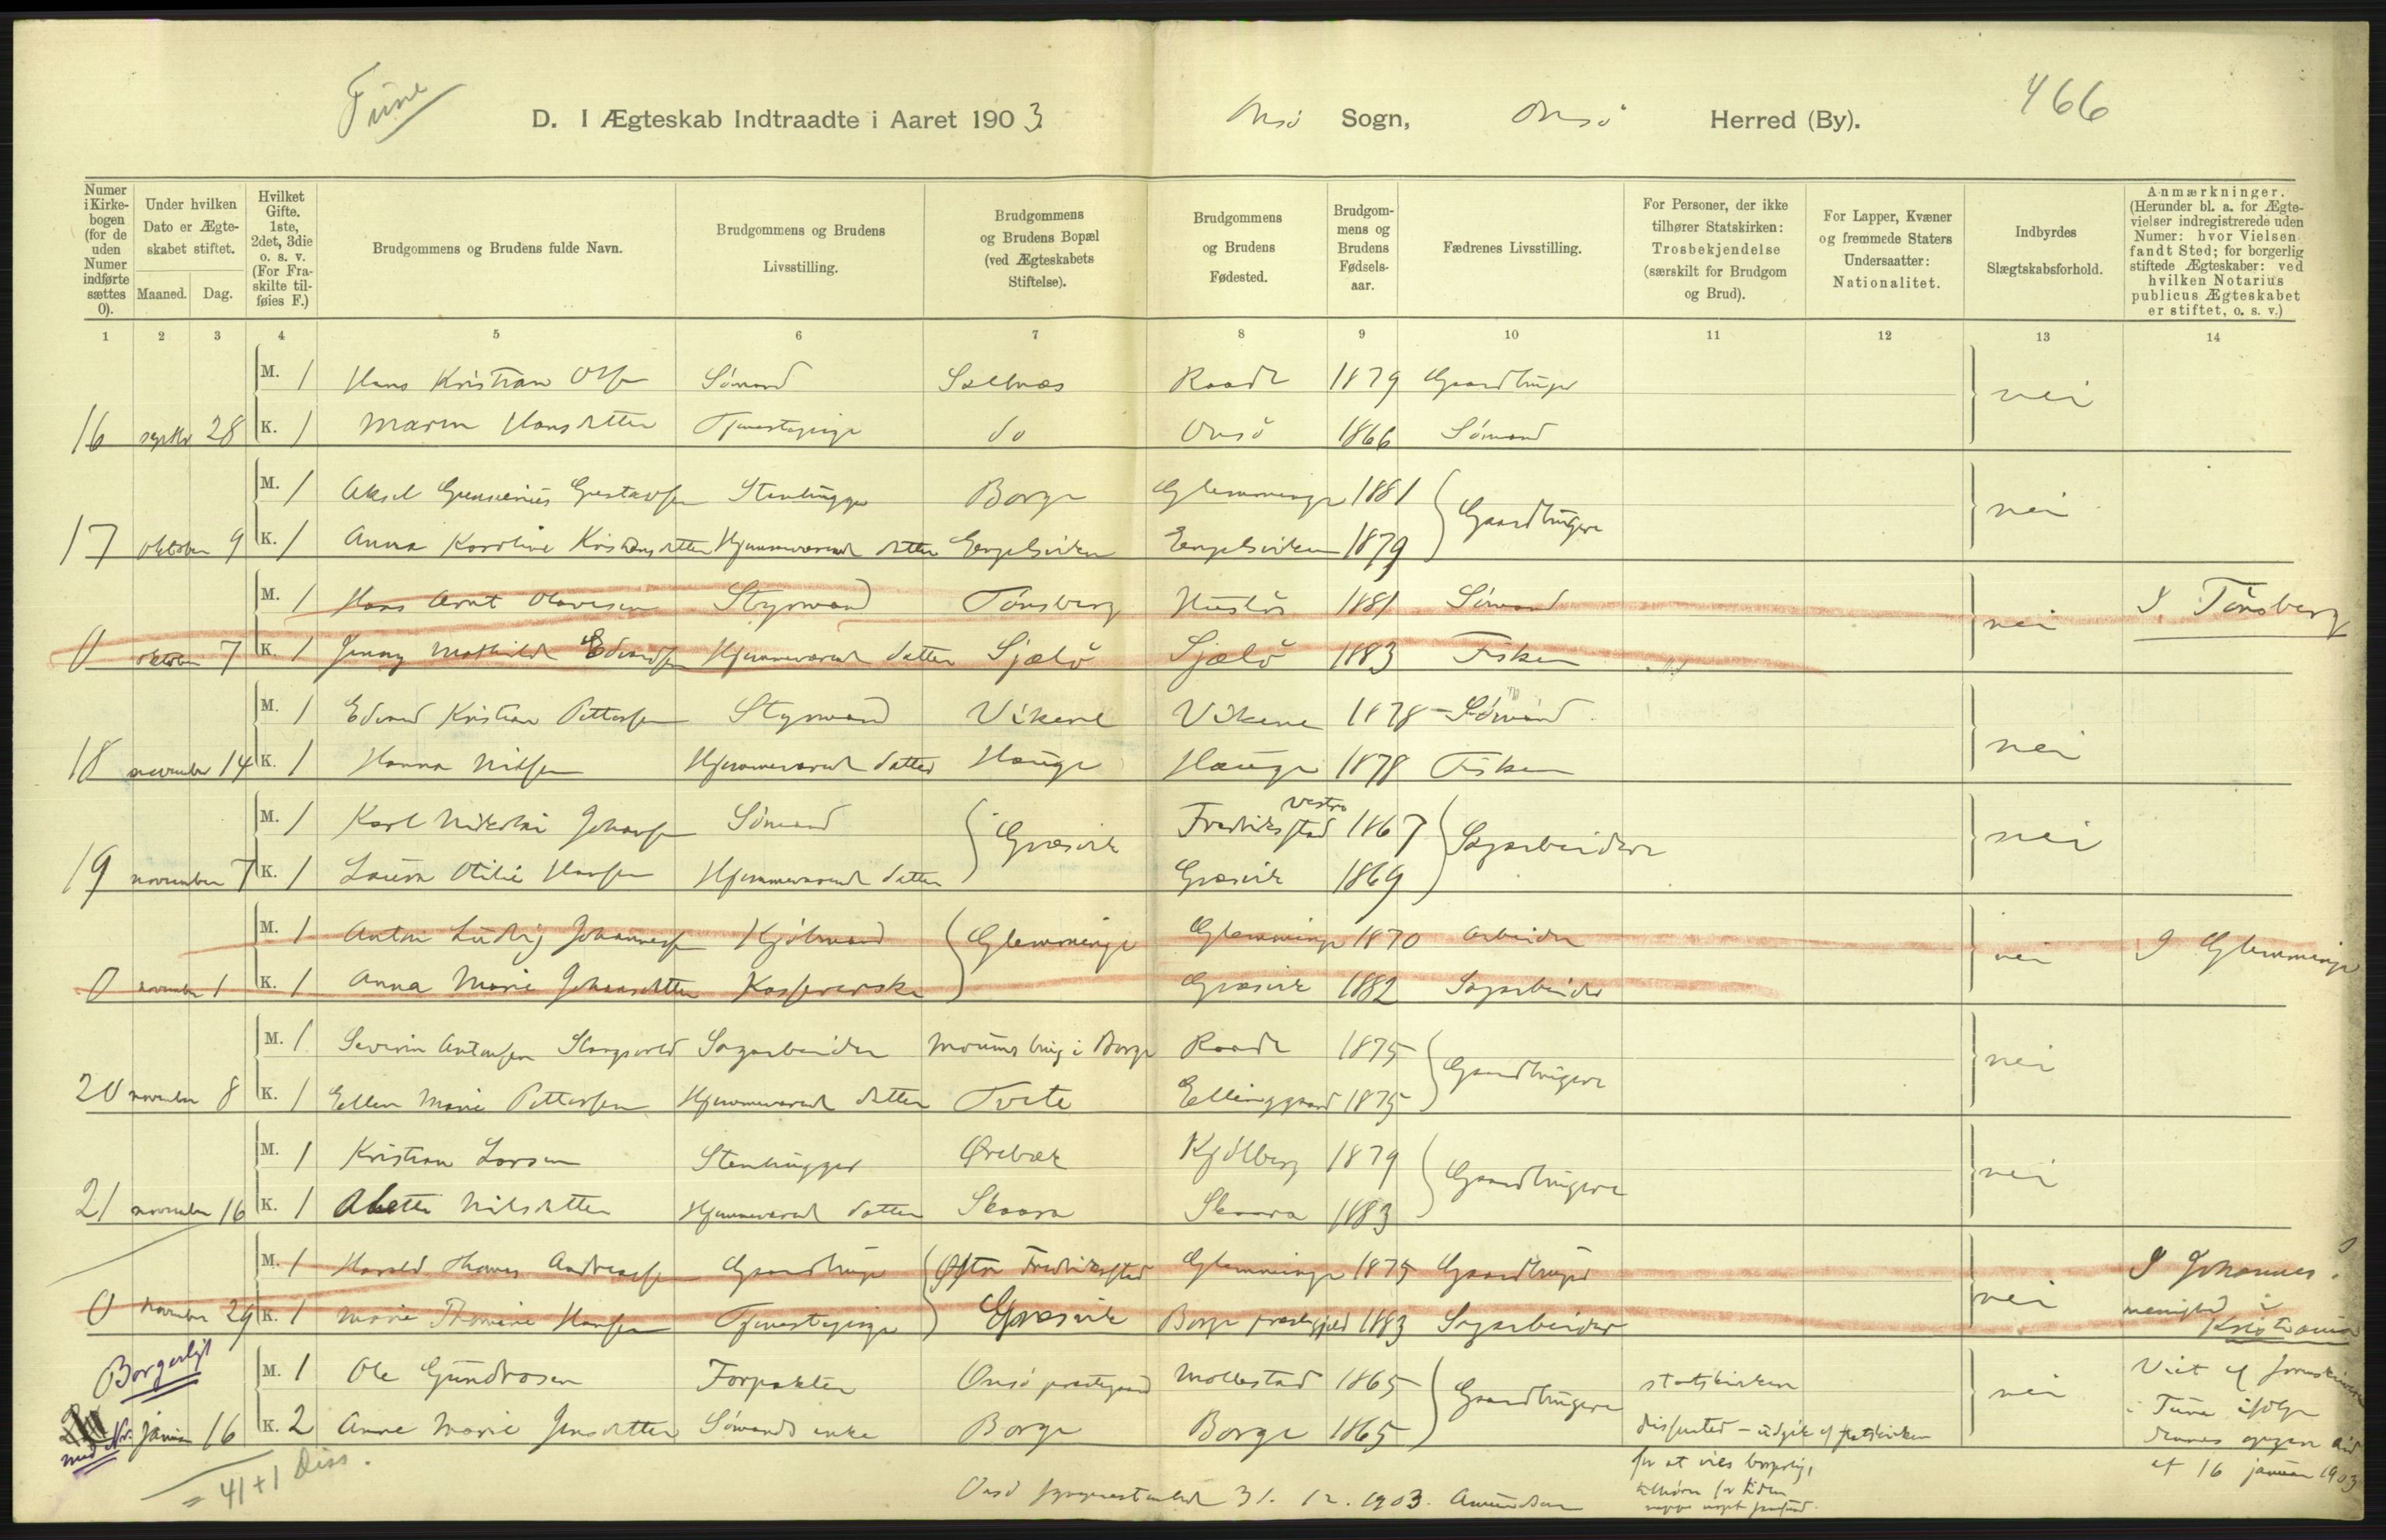 Tune
D. I Ægteskab Indtraadte i Aaret 1903.
Onsö Sogn, Onsö Herred (By).
466
Numer i Kirkebogen (for de uden Numer indførte sættes 0).
Under hvilken Dato er Ægteskabet stiftet.
Maaned. Dag.
Hvilket Gifte. 1ste, 2det, 3die o. s. v. (For Fraskilte tilføies F.)
Brudgommens og Brudens fulde Navn.
Brudgommens og Brudens Livsstilling.
Brudgommens og Brudens Bopæl (ved Ægteskabets Stiftelse).
Brudgommens og Brudens Fødested.
Brudgommens og Brudens Fødselsaar.
Fædrenes Livsstilling.
For Personer, der ikke tilhører Statskirken: Trosbekjendelse (særskilt for Brudgom og Brud).
For Lapper, Kvæner og fremmede Staters Undersaatter: Nationalitet.
Indbyrdes Slægtskabsforhold.
Anmærkninger. (Herunder bl. a. for Ægtevielser indregistrerede uden Numer: hvor Vielsen fandt Sted; for borgerlig stiftede Ægteskaber: ved hvilken Notarius publicus Ægteskabet er stiftet, o. s. v.)
1 2 3 4 5 6 7 8 9 10 11 12 13 14
M. 1 Hans Kristian Olsen Sömand Saltnæs Raade 1879 Gaardbruger nei
16 septbr 28 K. 1 Maren Hansdatter Tjenestepige do Onsö 1866 Sömand
M. 1 Aksel Gustavsen Stenhugger Borge Glemminge 1881 Gaardbrugere nei
17 oktober 9 K. 1 Anna Karoline Kristensdatter Hjemmeværende datter Engelsviken Engelsviken 1879
M. 1 Hans Arnt Olavesen Styrmand Tönsberg 1881 Sömand nei I Tönsberg
0 oktober 7 K. 1 Jenny Mathilde Edvardsen Hjemmeværende datter Sjælö Sjælö 1883 Fisker
M. 1 Edvard Kristian Pettersen Styrmand Vikene Vikene 1878 Sömand nei
18 november 14 K. 1 Hanna Nilsen Hjemmeværende datter Hauge Hauge 1878 Fisker
M. 1 Karl Nikolai Johansen Sömand Græsvik vestre Fredriksstad 1867 Sagarbeidere nei
19 november 7 K. 1 Laura Otilie Hansen Hjemmeværende datter Græsvik 1869
M. 1 Anton Ludvig Johannesen Kjölmand Glemminge Glemminge 1870 Arbeider nei I Glemminge
0 november 1 K. 1 Anna Marie Johansdatter Kassererske Græsvik 1882 Sagarbeider
M. 1 Severin Antonsen Sagarbeider i Borge Raade 1875 Gaardbrugere nei
20 november 8 K. 1 Ellen Marie Pettersen Hjemmeværende datter Tvete Ellinggaard 1875
M. 1 Kristian Larsen Stenhugger Örebæk Kjölberg 1879 Gaardbrugere nei
21 november 16 K. 1 Nilsdatter Hjemmeværende datter Skaara Skaara 1883
M. 1 Harald Thomas Andreassen Gaardbruger Östre Fredriksstad Glemminge 1875 Gaardbruger nei I Johannes
0 november 29 K. 1 Marie Hansen Tjenestepige Græsvik Borge præstegjeld 1883 Sagarbeider menighed i Kristiania
Borgerligt
M. 1 Ole Gundrosen Forpakter Onsö prestegaard Mollestad 1865 Gaardbrugere statskirken nei Viet af
med Nr. januar 16 K. 2 Anne Marie Jensdatter Sömands enke Borge Borge 1865 dissenter – udgik af statskirken i Tune ifölge
for at vies borgerlig, dennes opgave
tilhörer for tiden af 16 januar 1903
= 41+1 Diss.
Onsö 31.12.1903. Amundsen